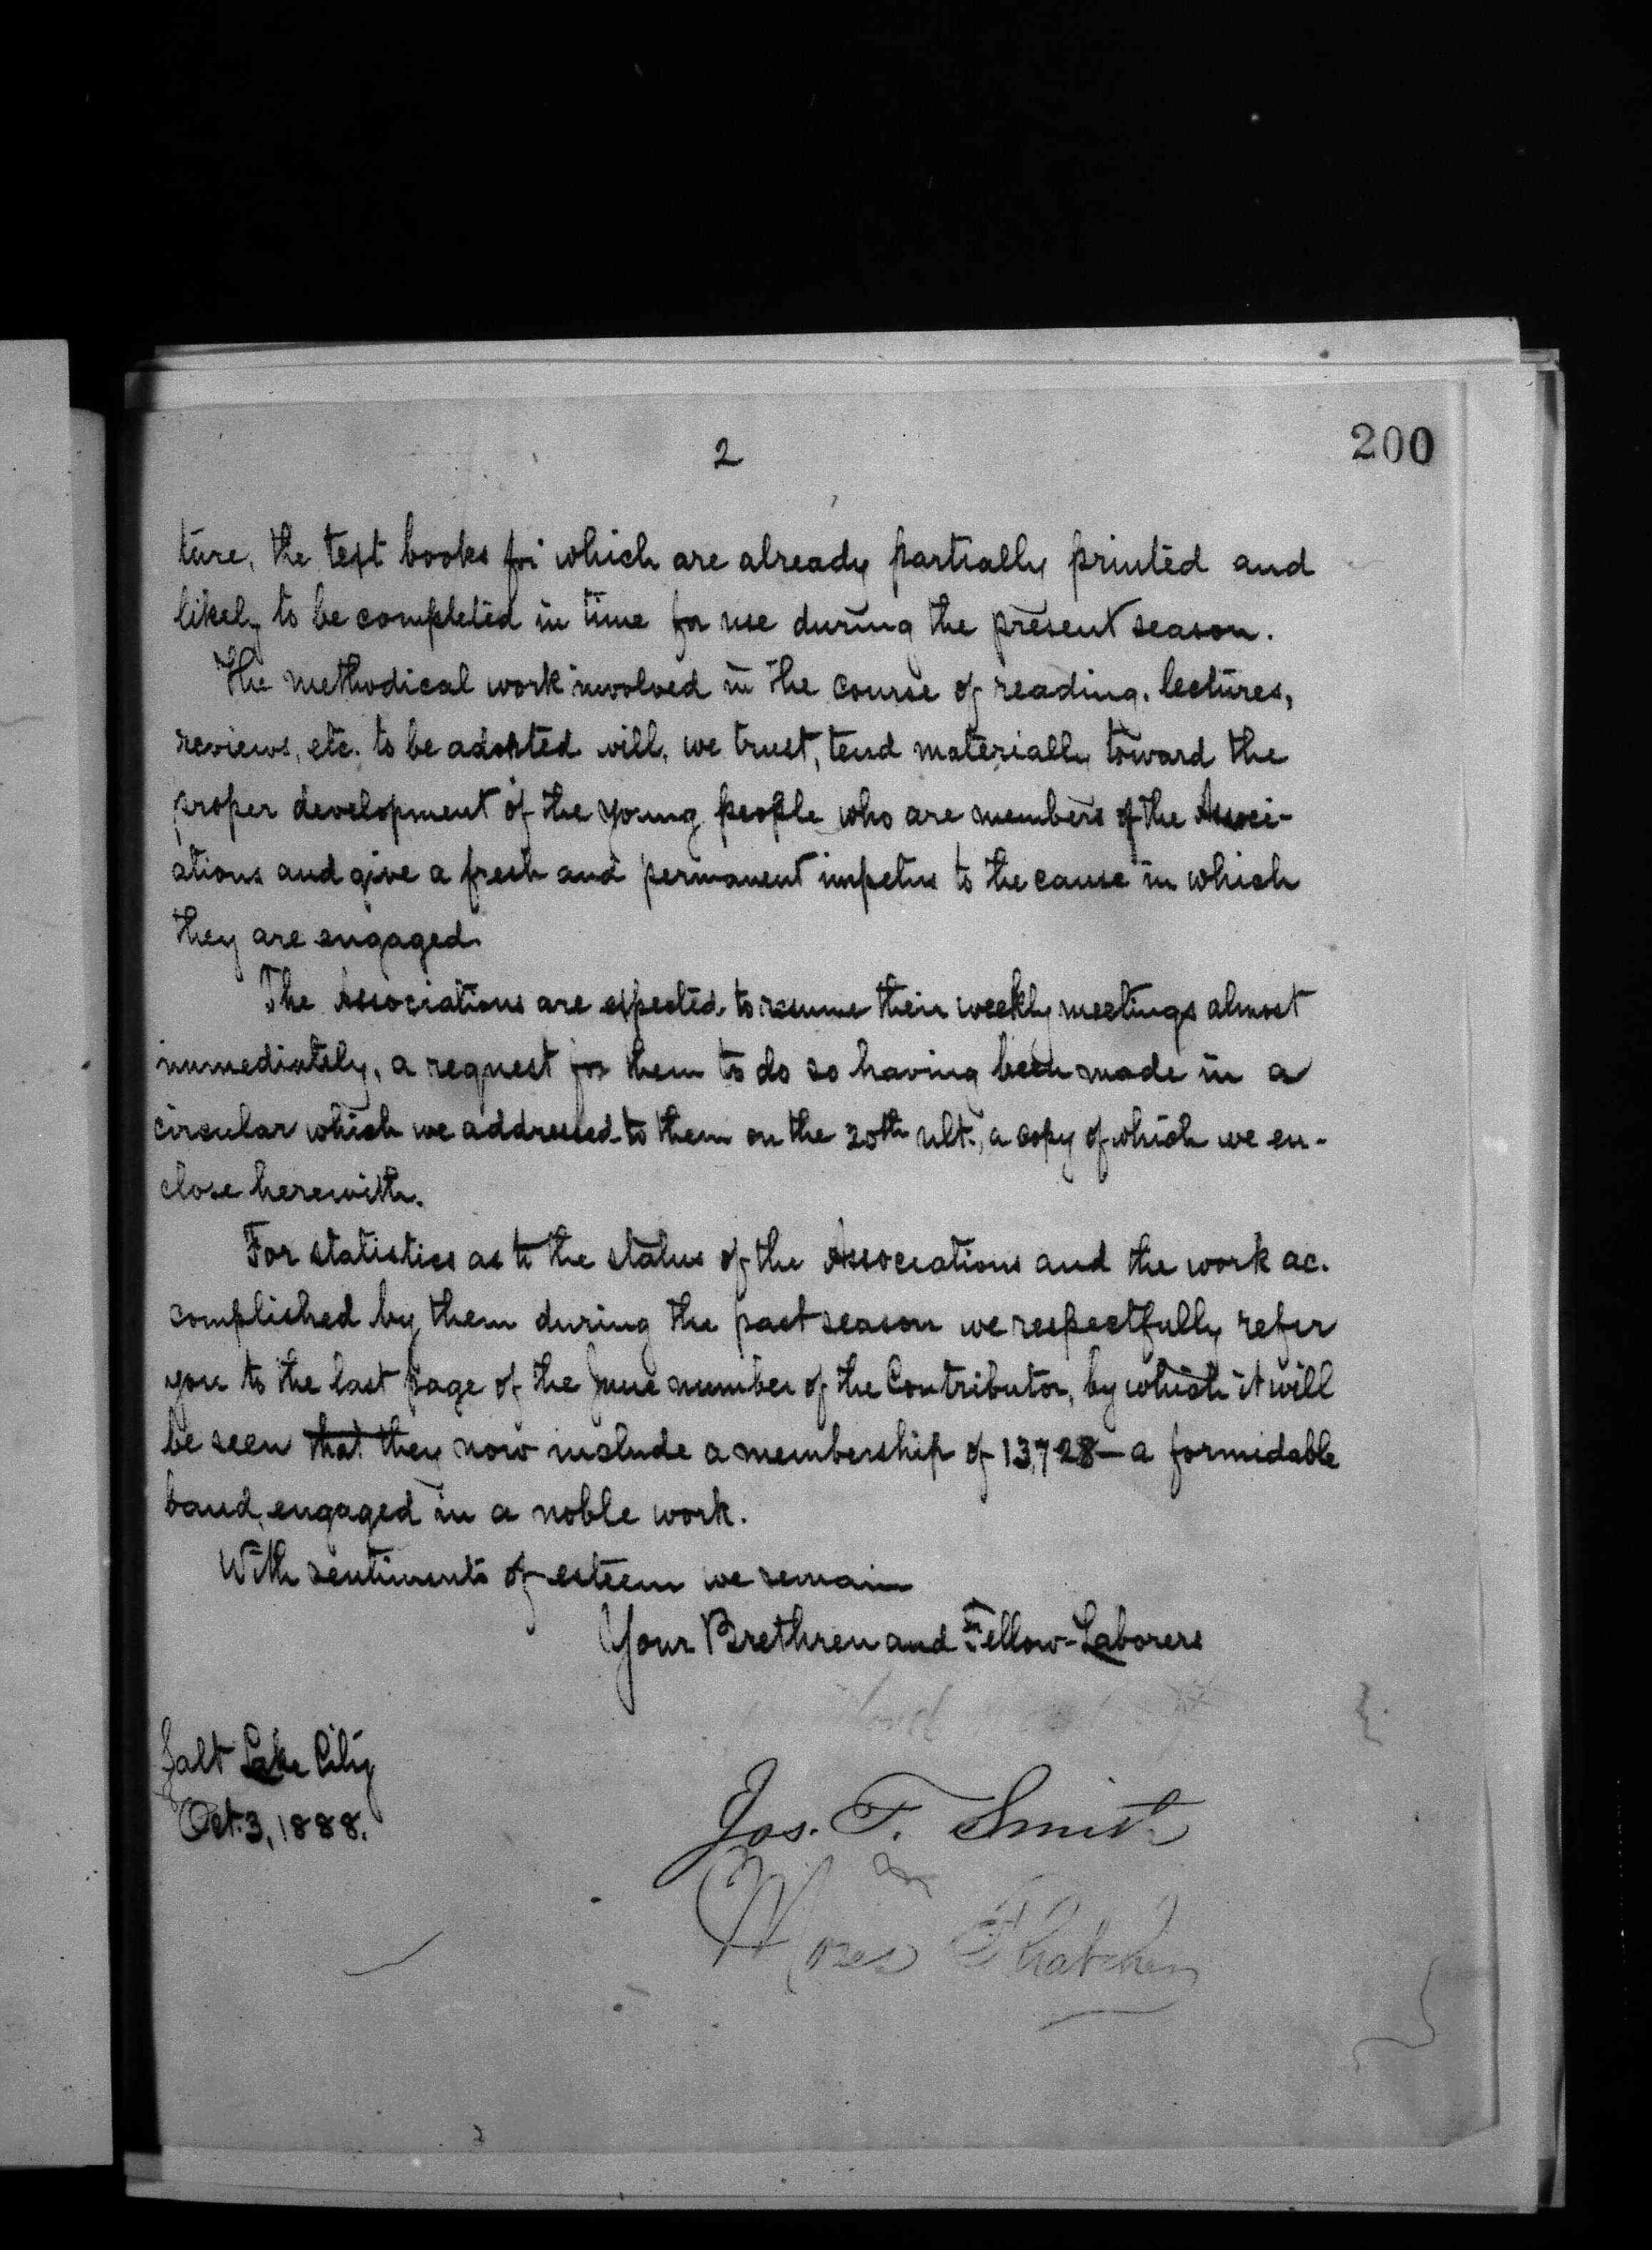 2
200
ture, the text books for which are already partially printed and
likely to be completed in time for use during the present season.
The methodical work involved in the course of reading, lectures,
reviews, etc. to be adopted will, we trust, tend materially toward the
proper development of the young people who are members of the Associ-
ations and give a fresh and permanent impetus to the cause in which
they are engaged.
The Associations are expected to resume their weekly meetings almost
immediately, a request for them to do so having been made in a
circular which we addressed to them on the 20th ult., a copy of which we en-
close herewith.
For statistics as to the status of the Associations and the work ac-
complished by them during the past season we respectfully refer
you to the last page of the June number of the Contributor, by which it will
be seen that they now include a membership of 13,728—a formidable
band, engaged in a noble work.
With sentiments of esteem we remain
Your Brethren and Fellow-Laborers
Salt Lake City
Oct. 3, 1888.
Jos. F. Smith
Moses Thatcher